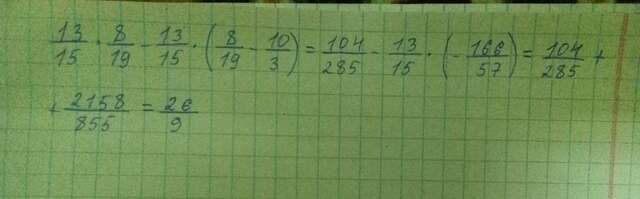 13/15 · 8/19 - 13/15 · (8/19 - 10/3) = 104/285 - 13/15 · (-166/57) = 104/285 +
+ 2158/855 = 26/9